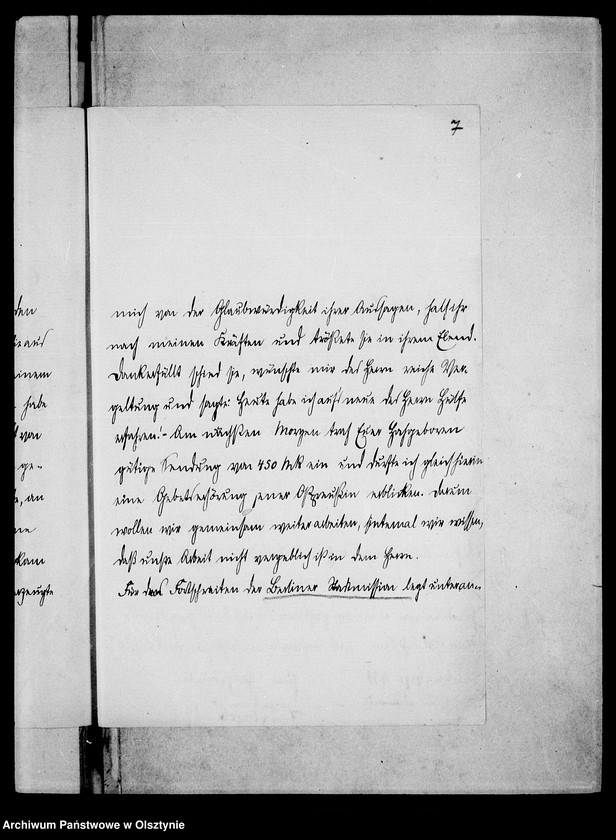 7
den
aus
einem
habe
von
ge-
, an
kam
erzeugte
mich von der Glaubwürdigkeit ihrer Aussagen, half ihr
nach meinen Kräften und tröstete sie in ihrem Elend.
Dankerfüllt schied sie, wünschte mir des Herrn reiche Ver-
geltung und sagte: Heute habe ich auf's neue des Herrn Hülfe
erfahren! - Am nächsten Morgen traf Euer Hochgeboren
gütige Sendung von 450 Mk ein und durfte ich gleich hierin
eine Gebetserhörung jener Ostpreußin erblicken. Darum
wollen wir gemeinsam weiter arbeiten, sintemal wir wissen,
daß unsre Arbeit nicht vergeblich ist in dem Herrn.
Für das Fortschreiten der Berliner Stadtmission legt unteran-
Archiwum Państwowe w Olsztynie